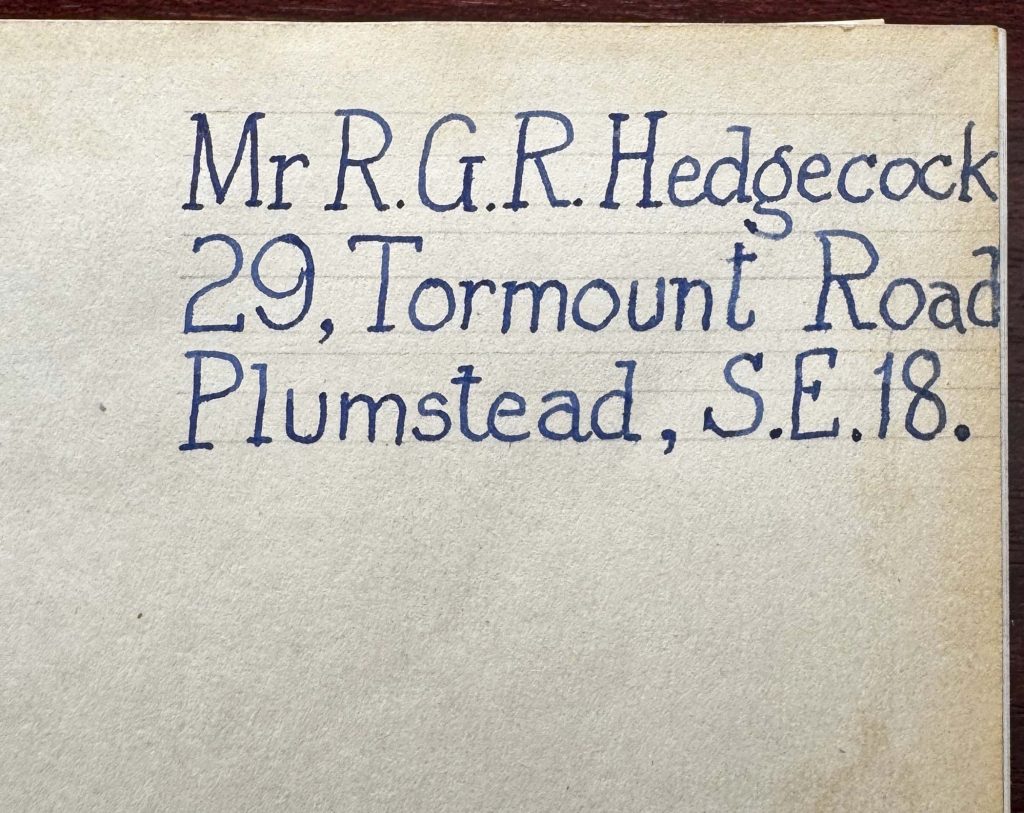 Mr R.G.R. Hedgecock
29, Tormount Road
Plumstead, S.E.18.